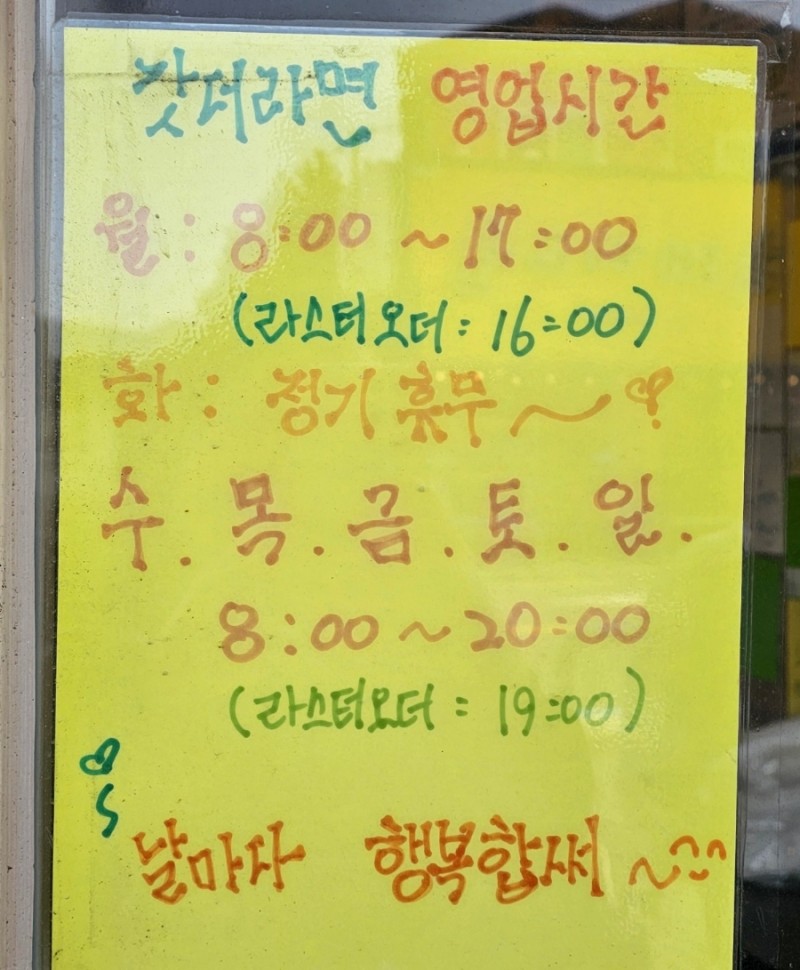 갓더라면 영업시간
월 : 8:00 ~ 17:00
(라스터오더 : 16:00)
화 : 정기 휴무~
수 . 목 . 금 . 토 . 일 .
8:00 ~ 20:00
(라스터오더 : 19:00)
날마다 행복합써 ~^^